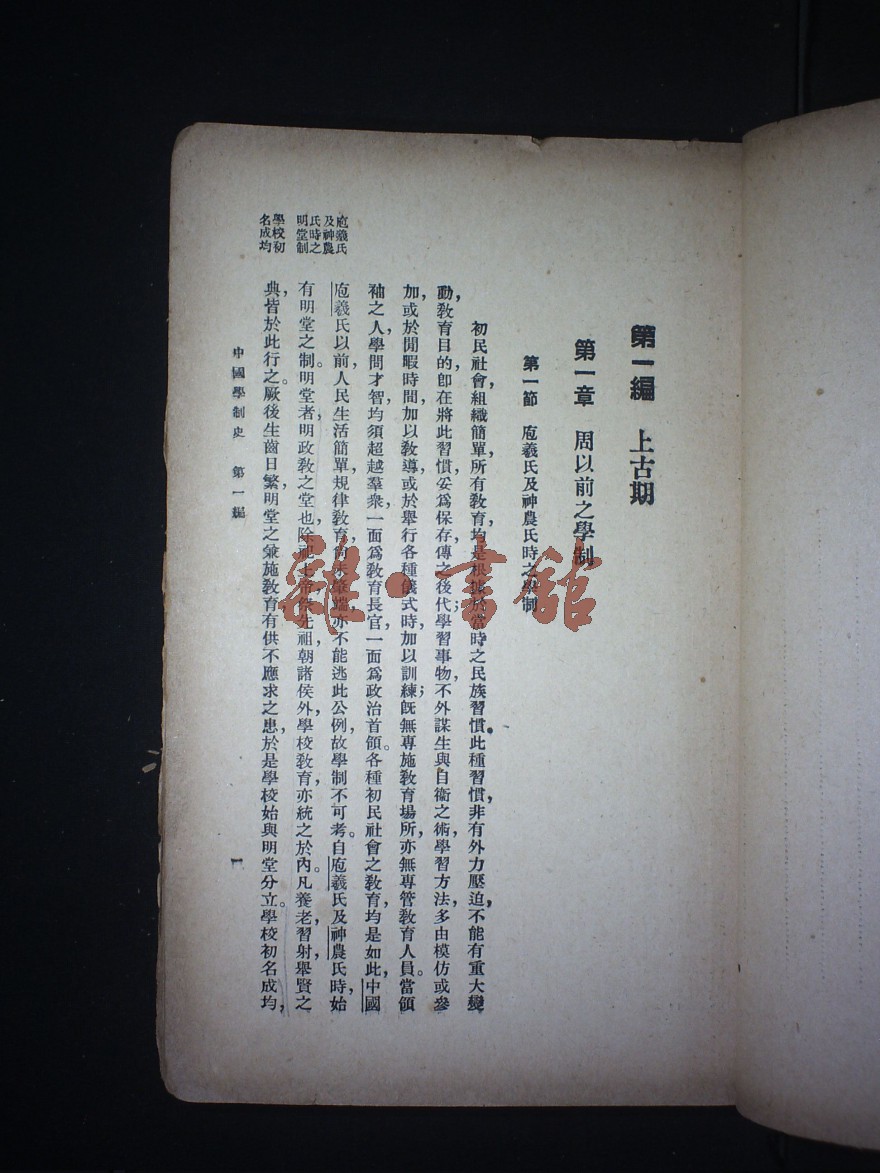 第一編　上古期
第一章　周以前之學制
第一節　庖羲氏及神農氏時之學制
初民社會，組織簡單，所有敎育，均是根據於當時之民族習慣。此種習慣，非有外力壓迫，不能有重大變
動，敎育目的，卽在將此習慣，妥爲保存，傳之後代；學習事物，不外謀生與自衞之術，學習方法，多由模仿或參
加，或於閒暇時間，加以敎導，或於舉行各種儀式時，加以訓練；旣無專施敎育場所，亦無專管敎育人員。當領
袖之人，學問才智，均須超越羣衆，一面爲敎育長官，一面爲政治首領。各種初民社會之敎育，均是如此，中國
庖羲氏以前，人民生活簡單，規律敎育，尙未肇端，亦不能逃此公例，故學制不可考。自庖羲氏及神農氏時，始
有明堂之制。明堂者，明政敎之堂也，除祀上帝，祭先祖，朝諸侯外，學校敎育，亦統之於內。凡養老，習射，舉賢之
典，皆於此行之。厥後生齒日繁，明堂之兼施敎育，有供不應求之患，於是學校始與明堂分立。學校初名成均，
庖羲氏
及神農
氏時之
明堂制
學校初
名成均
中國學制史　第一編
一
雜·書館